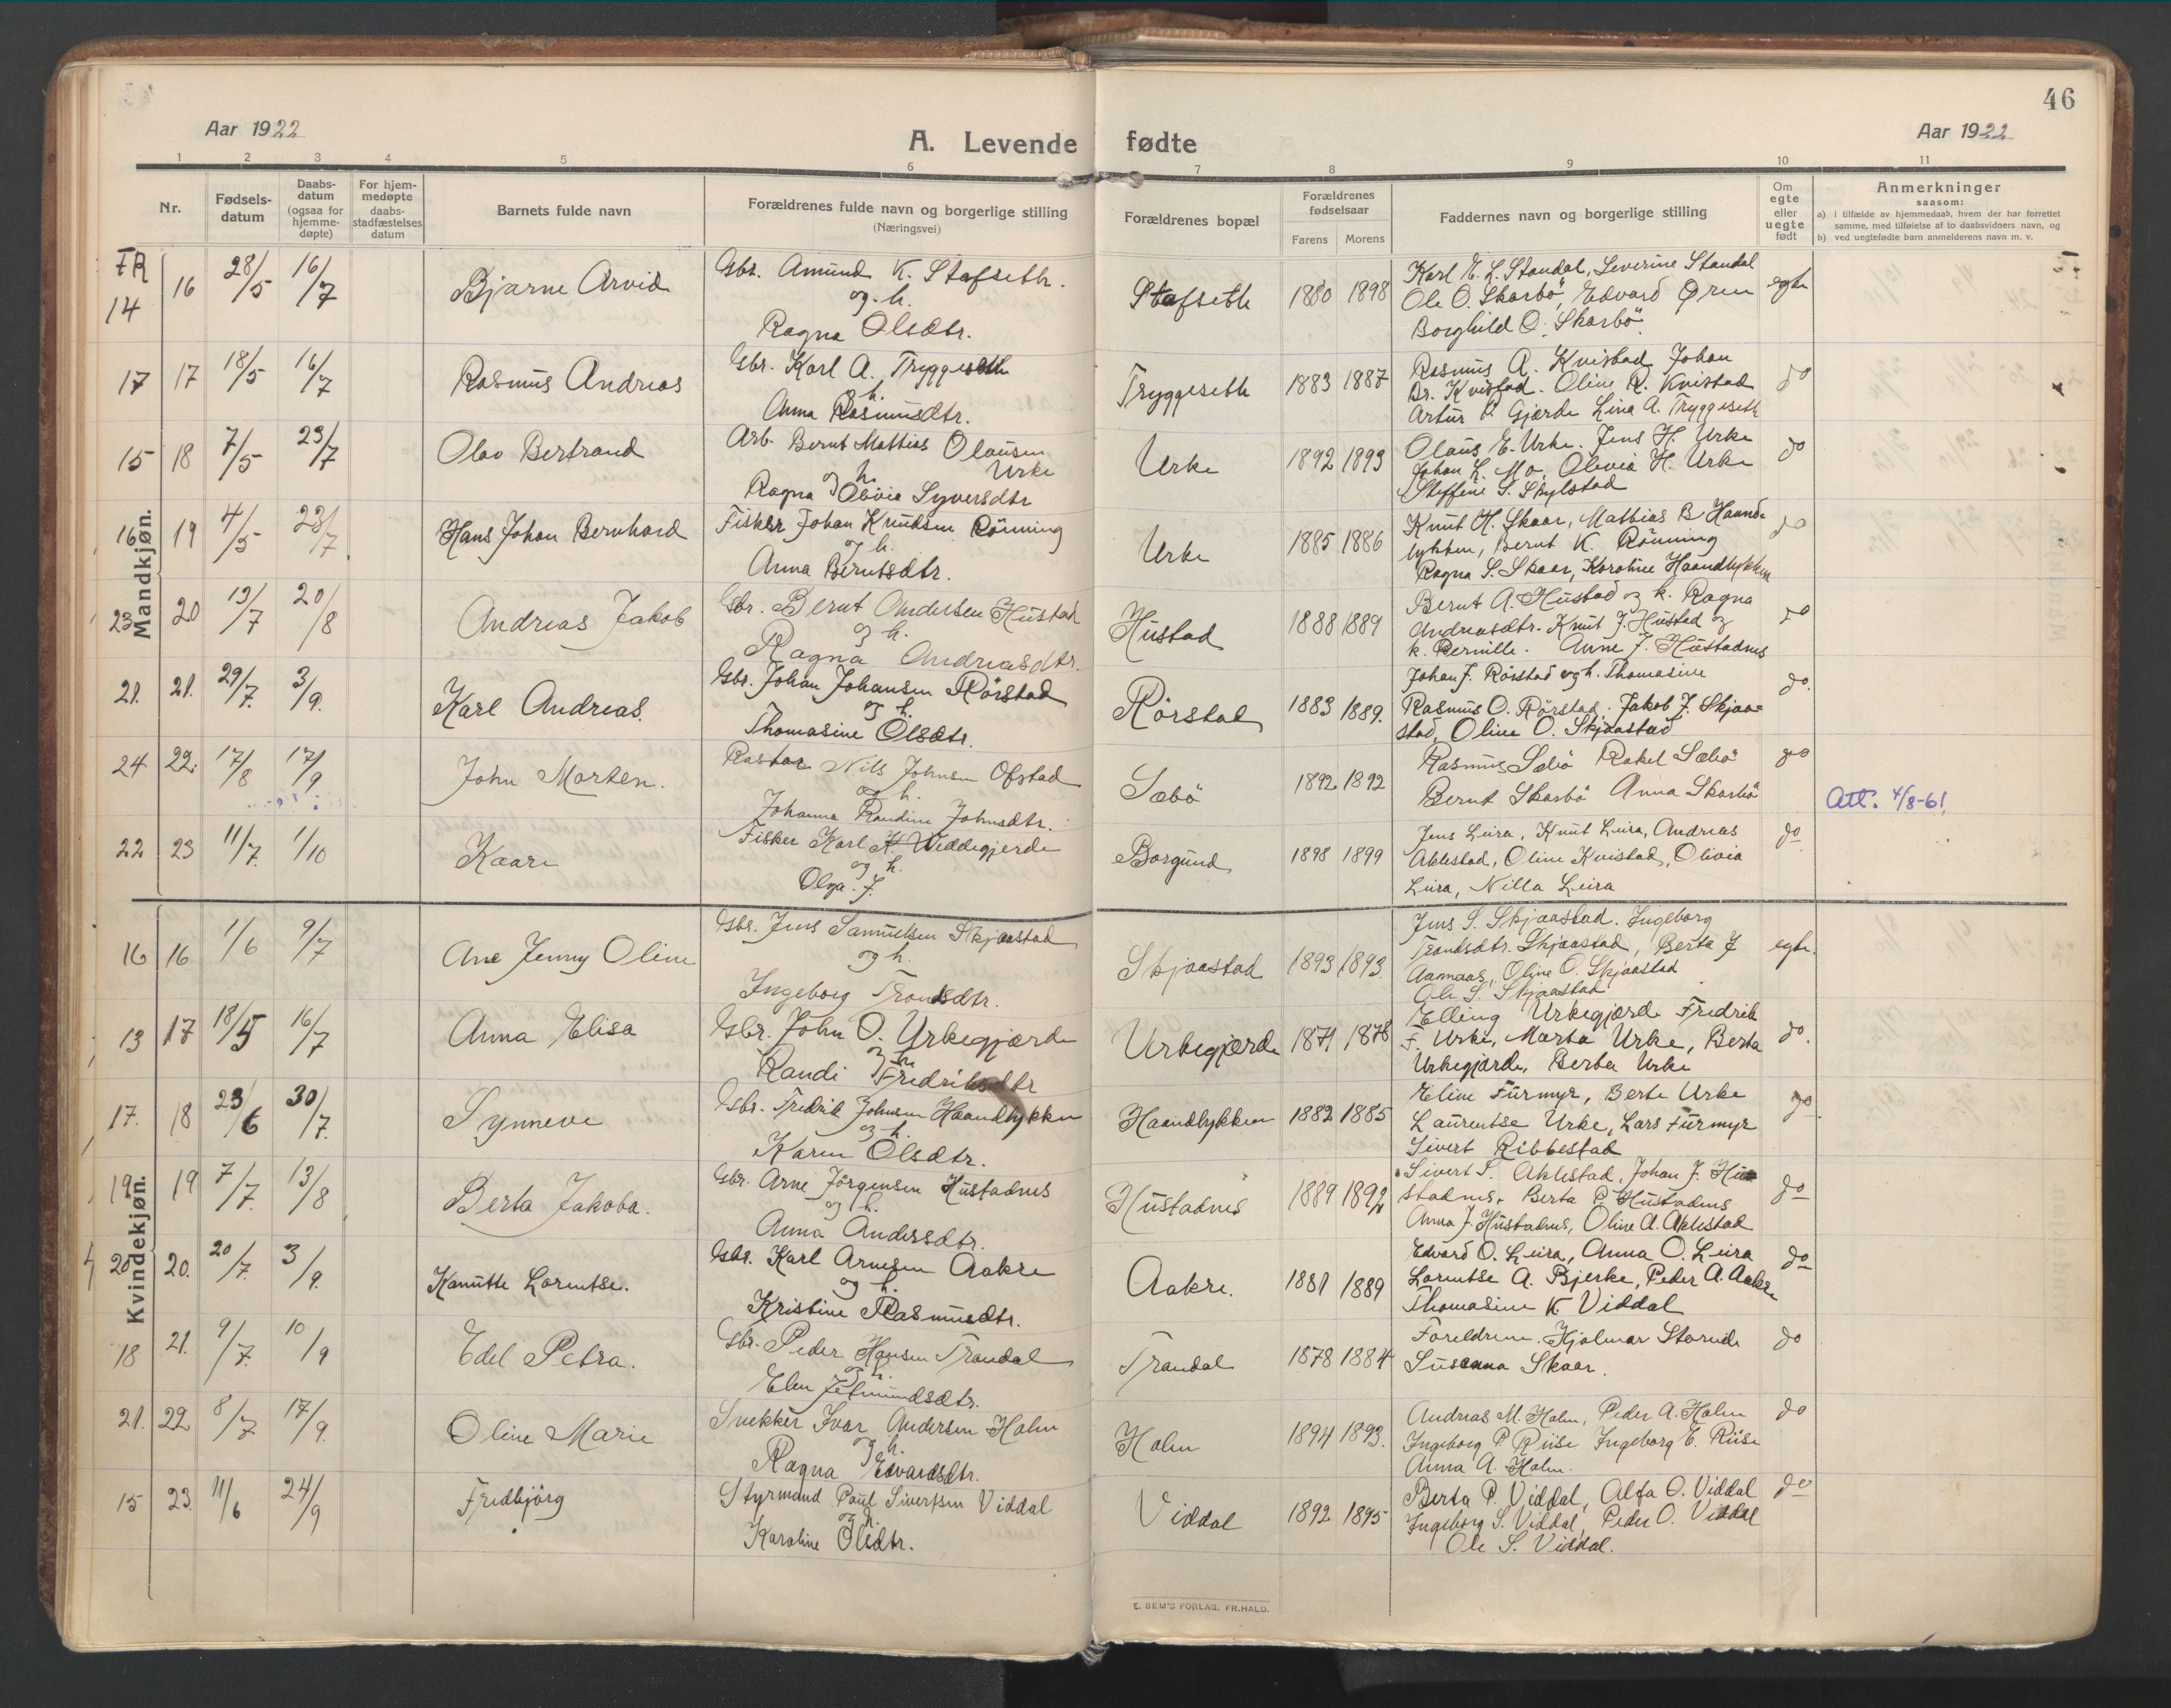 46
Aar 1922
A. Levende fødte
Aar 1922
1 2 3 4 5 6 7 8 9 10 11
Nr.
Fødsels-
datum
Daabs-
datum
(ogsaa for
hjemme-
døpte)
For hjem-
medøpte
daabs-
stadfæstelses
datum
Barnets fulde navn
Forældrenes fulde navn og borgerlige stilling
(Næringsvei)
Forældrenes bopæl
Forældrenes
fødselsaar
Farens Morens
Faddernes navn og borgerlige stilling
Om
egte
eller
uegte
født
Anmerkninger
saasom:
a) i tilfælde av hjemmedaab, hvem der har forrettet
samme, med tilføielse af to daabsvidners navn, og
b) ved uegtefødte barn anmelderens navn m. v.
Mandkjøn.
FR
14 16 28/5 16/7 Bjarne Arvid
Gbr. Amund K. Stafseth.
og h.
Ragna Olsdtr.
Stafseth 1880 1898
Karl E. L. Standal, Severine Standal
Ole O. Skarbö, Edvard Øren
Borghild O. Skarbö.
egte
17 17 18/5 16/7 Rasmus Andreas
Gbr. Karl A. Tryggeseth
og h.
Anna Rasmusdtr.
Tryggeseth 1883 1887
Rasmus A. Kvistad, Johan
Br. Kvistad. Oline R. Kvistad
Artur P. Gjærde Lina A. Tryggeseth
do
15 18 7/5 23/7 Olav Bertrand
Arb. Bernt Mattias Olausen
Urke
og h.
Ragna Olivia Syversdtr
Urke 1892 1893
Olaus E. Urke. Jens H. Urke
Johan L. Mo, Olivia H. Urke
Steffine S. Skylstad
do
16 19 4/5 23/7. Hans Johan Bernhard
Fisker Johan Knudsen Rönning
og h.
Anna Berntsdtr.
Urke 1885 1886
Knut H. Skaar, Mathias B Haand-
lykken, Bernt K. Rönning
Ragna S. Skaar, Karoline Haandlykken
do
23 20 13/7 20/8 Andreas Jakob
Gbr. Bernt Andersen Hustad
og h.
Ragna Andreasdtr.
Hustad 1888 1889
Bernt A. Hustad og k. Ragna
Andreasdtr. Knut J. Hustad og
k. Pernille. Anne J. Hustadnes
do
21. 21. 29/7. 3/9. Karl Andreas.
Gbr. Johan Johansen Rörstad
og h.
Thomasine Olsdtr.
Rörstad 1883 1889.
Johan J. Rörstad og h. Thomasine
Rasmus O. Rörstad. Jakob J. Skjaa-
stad, Oline O. Skjaastad
do.
24 22. 17/8 17/9 John Morten.
Pastor Nils Johnsen Ofstad
og h.
Johanna Randine Johnsdtr.
Sæbö 1892 1892
Rasmus Sæbö Rakel Sæbö
Bernt Skarbö Anna Skarbö
do
Att. 4/8-61
22 23 11/7. 1/10 Kaare
Fisker Karl K. Widdegjerde
og h.
Olga. J.
Borgund 1898 1899
Jens Leira, Knut Leira, Andreas
Aklestad, Oline Kvistad, Olivia
Leira, Nilla Leira
do
Kvindekjøn.
16 16 1/6 9/7 Ane Jenny Oline
Gbr. Jens Samuelsen Skjaastad
og h.
Ingeborg Trondsdtr.
Skjaastad 1893 1893.
Jens S. Skjaastad. Ingeborg
Trondsdtr. Skjaastad, Berta J
Aamaas, Oline O. Skjaastad
Ole S. Skjaastad
egte.
13 17 18/5 16/7 Anna Elisa
Gbr. John O. Urkegjærde
og h
Randi Fredriksdtr
Urkegjærde 1871 1878
Elling Urkegjærde Fredrik
F. Urke, Marta Urke, Berta
Urkegjærde, Berta Urke
do.
17. 18 23/6 30/7. Synneve
Gbr. Fredrik Johnsen Haandlykken
og h.
Karen Olsdtr.
Haandlykken 1882 1885
Eline Furmyr, Berte Urke
Laurentse Urke, Lars Furmyr
Sivert Ribbestad
do.
19 19 7/7. 13/8 Berta Jakoba.
Gbr. Arne Jörgensen Hustadnes
og h.
Anna Andersdtr.
Hustadnes 1889 1892
Sivert S. Aklestad, Johan J. Hu-
stadnes. Berta P. Hustadnes
Anna J. Hustadnes, Oline A. Aklestad
do
20 20. 20/7. 3/9. Kanutte Lorentse.
Gbr. Karl Arnesen Aakre
og h.
Kristine Rasmusdtr.
Aakre. 1881 1889
Edvard O. Leira, Anna O. Leira
Lorentse A. Bjerke, Peder A. Aakre
Thomasine K Viddal
do
18 21. 9/7. 10/9 Edel Petra.
Gbr. Peder Hansen Trandal
og h.
Elen Jetmundsdtr.
Trandal 1878 1884
Foreldrene. Hjalmar Storeide
Susanna Skaar.
do
21. 22 8/7 17/9. Oline Marie
Snekker Ivar Andersen Holm
og h.
Ragna Edvardsdtr.
Holm 1894 1893.
Andreas M. Holm, Peder A. Holm
Ingeborg P. Riise Ingeborg E. Riise
Anna A. Holm.
do
15 23. 11/6 24/9 Fredbjörg
Styrmand Paul Sivertsen Viddal
og h.
Karoline Olsdtr.
Viddal 1892 1895
Berta P. Viddal, Alfa O. Viddal
Ingeborg S. Viddal, Peder O. Viddal
Ole S. Viddal.
do
E. SEM'S FORLAG, FR.HALD.